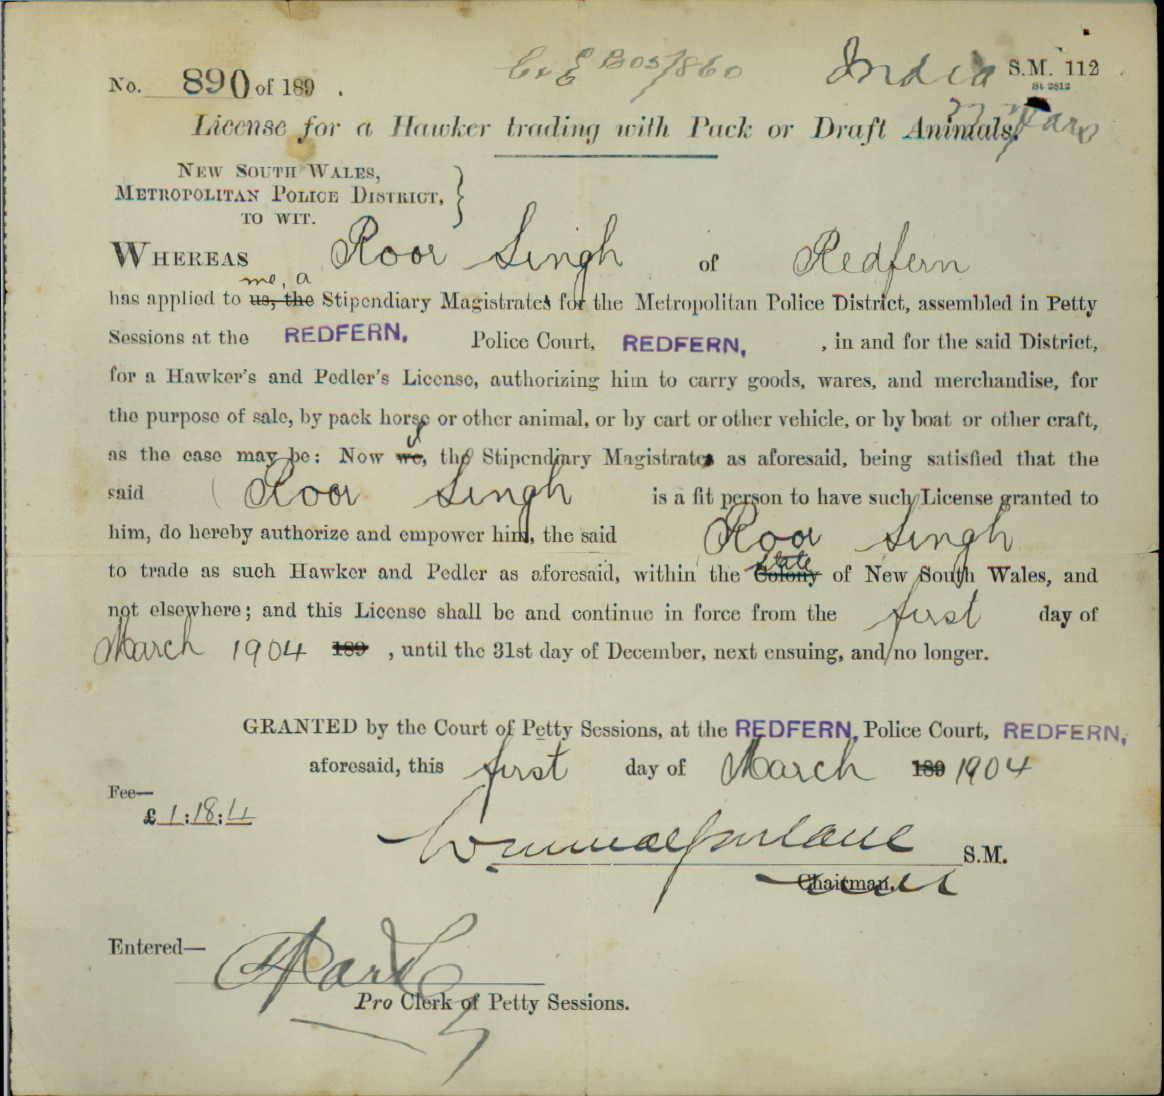 No. 890 of 189 .
India S.M. 112
St 2812
License for a Hawker trading with Pack or Draft Animals.
New South Wales,
Metropolitan Police District,
to wit.
Whereas Roor Singh of Redfern
me, a
has applied to us, the Stipendiary Magistrates for the Metropolitan Police District, assembled in Petty
Sessions at the REDFERN, Police Court, REDFERN, , in and for the said District,
for a Hawker's and Pedler's License, authorizing him to carry goods, wares, and merchandise, for
the purpose of sale, by pack horse or other animal, or by cart or other vehicle, or by boat or other craft,
I
as the case may be: Now we, the Stipendiary Magistrates as aforesaid, being satisfied that the
said Roor Singh is a fit person to have such License granted to
him, do hereby authorize and empower him, the said Roor Singh
State
to trade as such Hawker and Pedler as aforesaid, within the Colony of New South Wales, and
not elsewhere; and this License shall be and continue in force from the first day of
March 1904 189 , until the 31st day of December, next ensuing, and no longer.
GRANTED by the Court of Petty Sessions, at the REDFERN, Police Court, REDFERN,
aforesaid, this first day of March 189 1904
Fee—
£ 1:18:4
S.M.
Chairman.
Entered—
Pro Clerk of Petty Sessions.